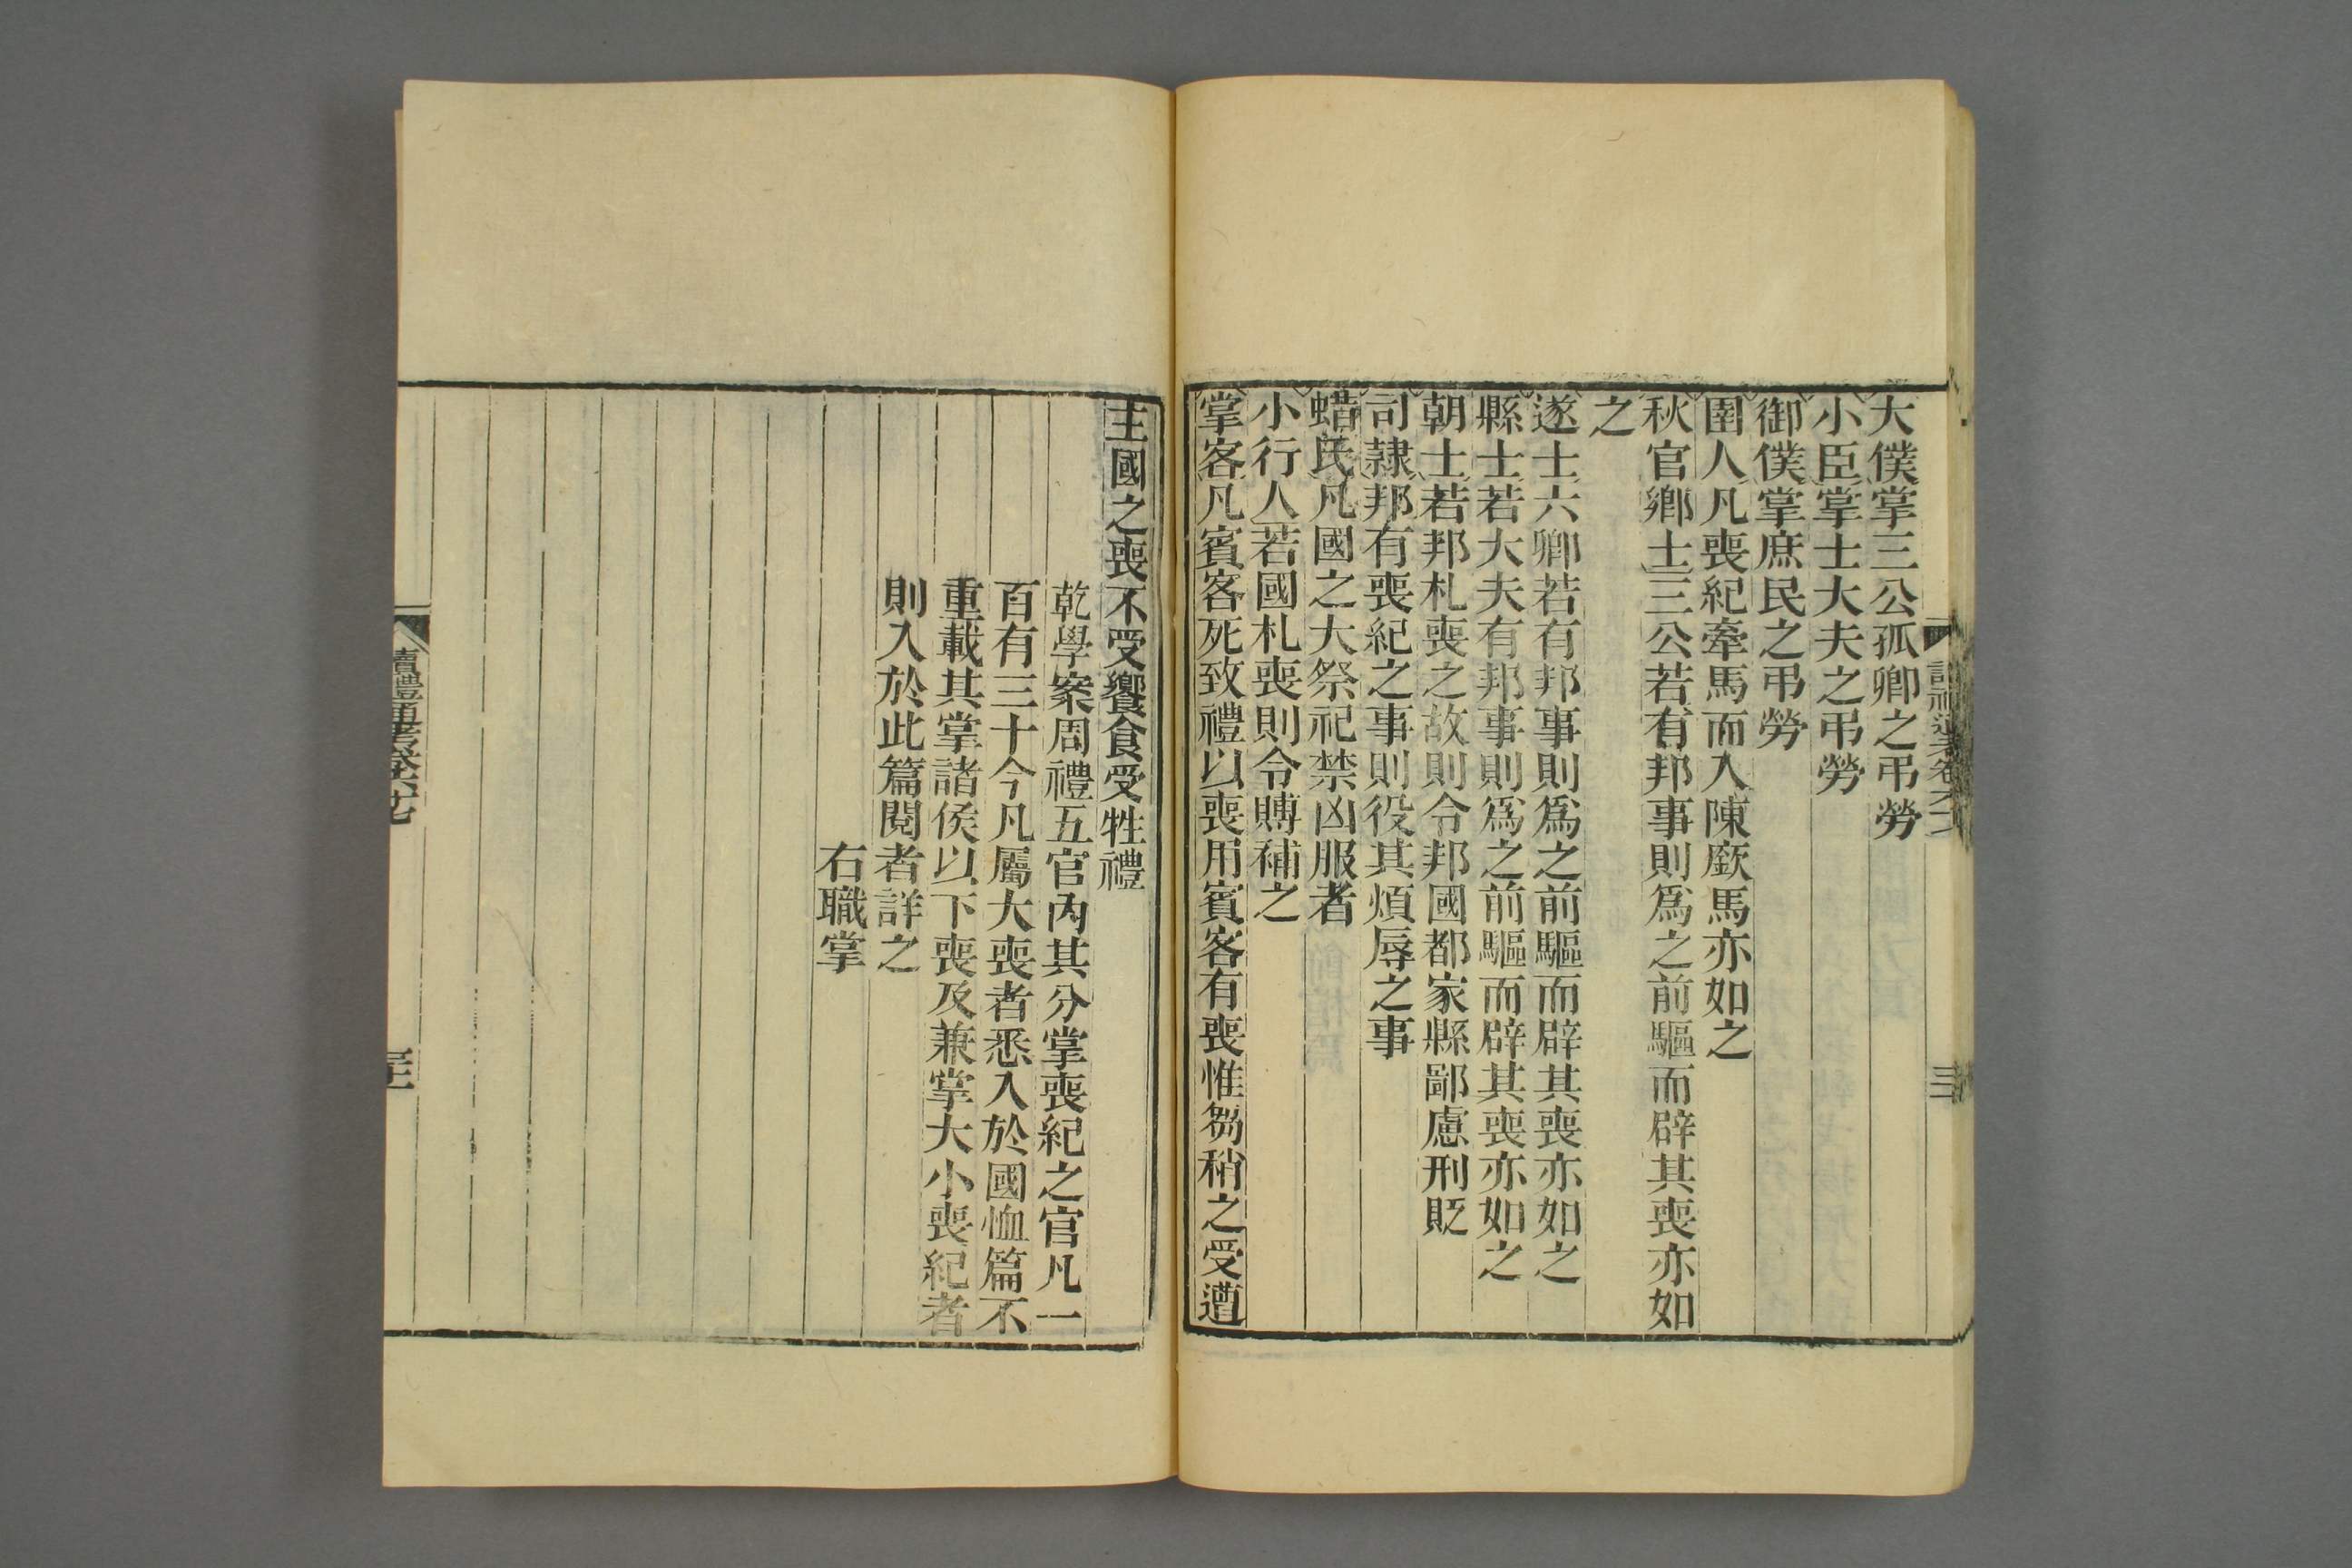 大僕掌三公孤卿之弔勞
小臣掌士大夫之弔勞
御僕掌庶民之弔勞
圉人凡喪紀牽馬而入陳廞馬亦如之
秋官鄉士三公若有邦事則爲之前驅而辟其喪亦如
之
遂士六卿若有邦事則爲之前驅而辟其喪亦如之
縣士若大夫有邦事則爲之前驅而辟其喪亦如之
朝士若邦札喪之故則令邦國都家縣鄙慮刑貶
司隷邦有喪紀之事則役其煩辱之事
蜡氏凡國之大祭祀禁凶服者
小行人若國札喪則令賻補之
掌客凡賓客死致禮以喪用賓客有喪惟芻稍之受遭
主國之喪不受饗食受牲禮
乾學案周禮五官內其分掌喪紀之官凡一
百有三十今凡屬大喪者悉入於國恤篇不
重載其掌諸侯以下喪及兼掌大小喪紀者
則入於此篇閱者詳之
右職掌
讀禮通考卷